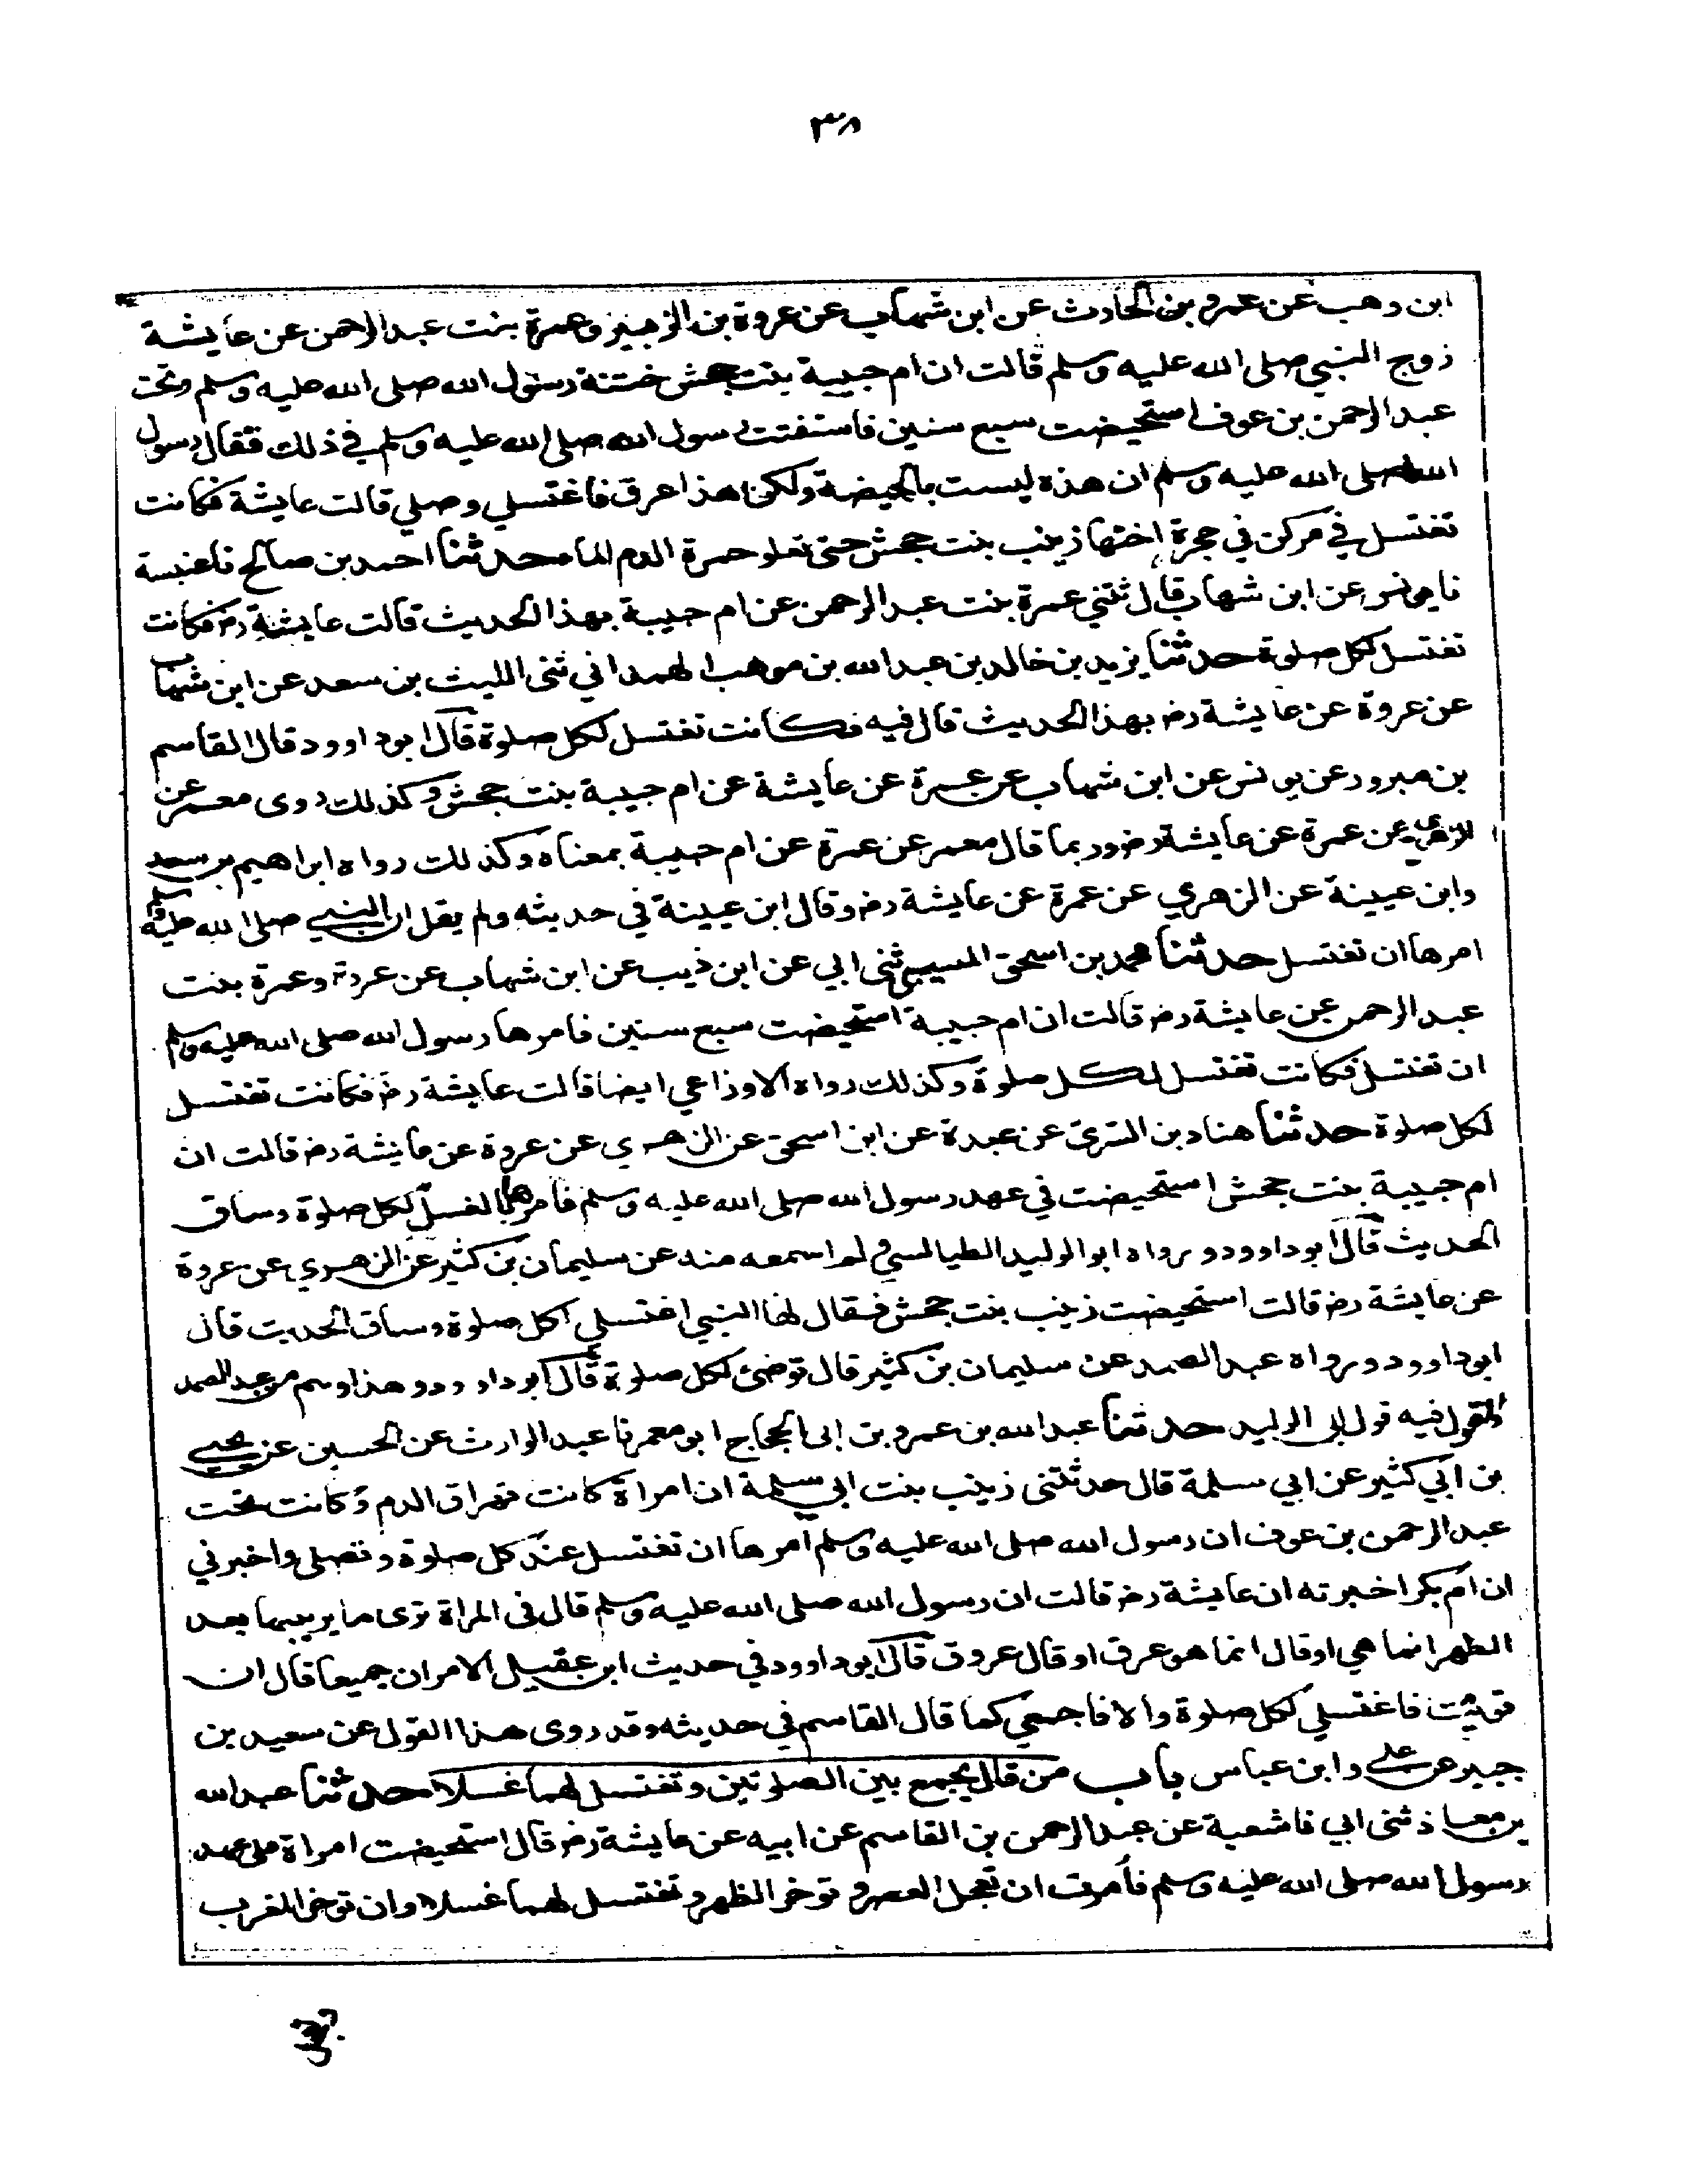 ٣٨
ابن وهب عن عمرو بن الحارث عن ابن شهاب عن عروة بن الزبير وعمرة بنت عبد الرحمن عن عايشة
زوج النبي صلى الله عليه وسلم قالت ان ام حبيبة بنت جحش ختنة رسول الله صلى الله عليه وسلم وتحت
عبد الرحمن بن عوف استحيضت سبع سنين فاستفتت رسول الله صلى الله عليه وسلم في ذلك فقال رسول
الله صلى الله عليه وسلم ان هذه ليست بالحيضة ولكن هذا عرق فاغتسلي وصلي قالت عايشة فكانت
تغتسل في مركن في حجرة اختها زينب بنت جحش حتى تعلو حمرة الدم الماء حدثنا احمد بن صالح نا عنبسة
نا يونس عن ابن شهاب قال ثتني عمرة بنت عبد الرحمن عن ام حبيبة بهذا الحديث قالت عايشة رضـ فكانت
تغتسل لكل صلوة حدثنا يزيد بن خالد بن عبد الله بن موهب الهمداني ثنى الليث بن سعد عن ابن شهاب
عن عروة عن عايشة رضـ بهذا الحديث قال فيه فكانت تغتسل لكل صلوة قال ابو داوود قال القاسم
بن مبرور عن يونس عن ابن شهاب عن عمرة عن عايشة عن ام حبيبة بنت جحش وكذلك روى معمر عن
الزهري عن عمرة عن عايشة رضـ وربما قال معمر عن عمرة عن ام حبيبة بمعناه وكذلك رواه ابراهيم بن سعد
وابن عيينة عن الزهري عن عمرة عن عايشة رضـ وقال ابن عيينة في حديثه ولم يقل ان النبي صلى الله عليه وسلم
امرها ان تغتسل حدثنا محمد بن اسحق المسيبي ثنى ابي عن ابن ذيب عن ابن شهاب عن عروة وعمرة بنت
عبد الرحمن عن عايشة رضـ قالت ان ام حبيبة استحيضت سبع سنين فامرها رسول الله صلى الله عليه وسلم
ان تغتسل فكانت تغتسل لكل صلوة وكذلك رواه الاوزاعي ايضا قالت عايشة رضـ فكانت تغتسل
لكل صلوة حدثنا هناد بن السري عن عبدة عن ابن اسحق عن الزهري عن عروة عن عايشة رضـ قالت ان
ام حبيبة بنت جحش استحيضت في عهد رسول الله صلى الله عليه وسلم فامرها بالغسل لكل صلوة وساق
الحديث قال ابو داوود ورواه ابو الوليد الطيالسي ولم اسمعه منه عن سليمان بن كثير عن الزهري عن عروة
عن عايشة رضـ قالت استحيضت زينب بنت جحش فقال لها النبي اغتسلي لكل صلوة وساق الحديث قال
ابو داوود ورواه عبد الصمد عن سليمان بن كثير قال توضئ لكل صلوة قال ابو داوود وهذا وهم من عبد الصمد
القول فيه قول ابى الوليد حدثنا عبد الله بن عمرو بن ابى الحجاج ابو معمر نا عبد الوارث عن الحسين عن يحيى
بن ابي كثير عن ابي سلمة قال حدثتنى زينب بنت ابي سلمة ان امراة كانت تهراق الدم وكانت تحت
عبد الرحمن بن عوف ان رسول الله صلى الله عليه وسلم امرها ان تغتسل عند كل صلوة وتصلى واخبرني
ان ام بكر اخبرته ان عايشة رضـ قالت ان رسول الله صلى الله عليه وسلم قال فى المراة ترى ما يريبها بعد
الطهر انما هي او قال انما هو عرق او قال عروق قال ابو داوود في حديث ابن عقيل الامران جميعا قال ان
قويت فاغتسلي لكل صلوة والا فاجمعي كما قال القاسم في حديثه وقد روى هذا القول عن سعيد بن
جبير عن علي وابن عباس باب من قال يجمع بين الصلوتين وتغتسل لهما غسلا حدثنا عبد الله
بن معاذ ثنى ابي نا شعبة عن عبد الرحمن بن القاسم عن ابيه عن عايشة رضـ قال استحيضت امراة على عهد
رسول الله صلى الله عليه وسلم فأمرت ان تعجل العصر وتوخر الظهر وتغتسل لهما غسلا وان توخر المغرب